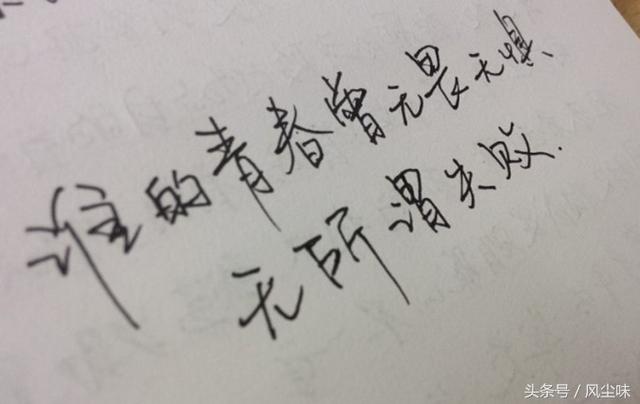 谁的青春曾无畏无惧
无所谓失败.
头条号／风尘味